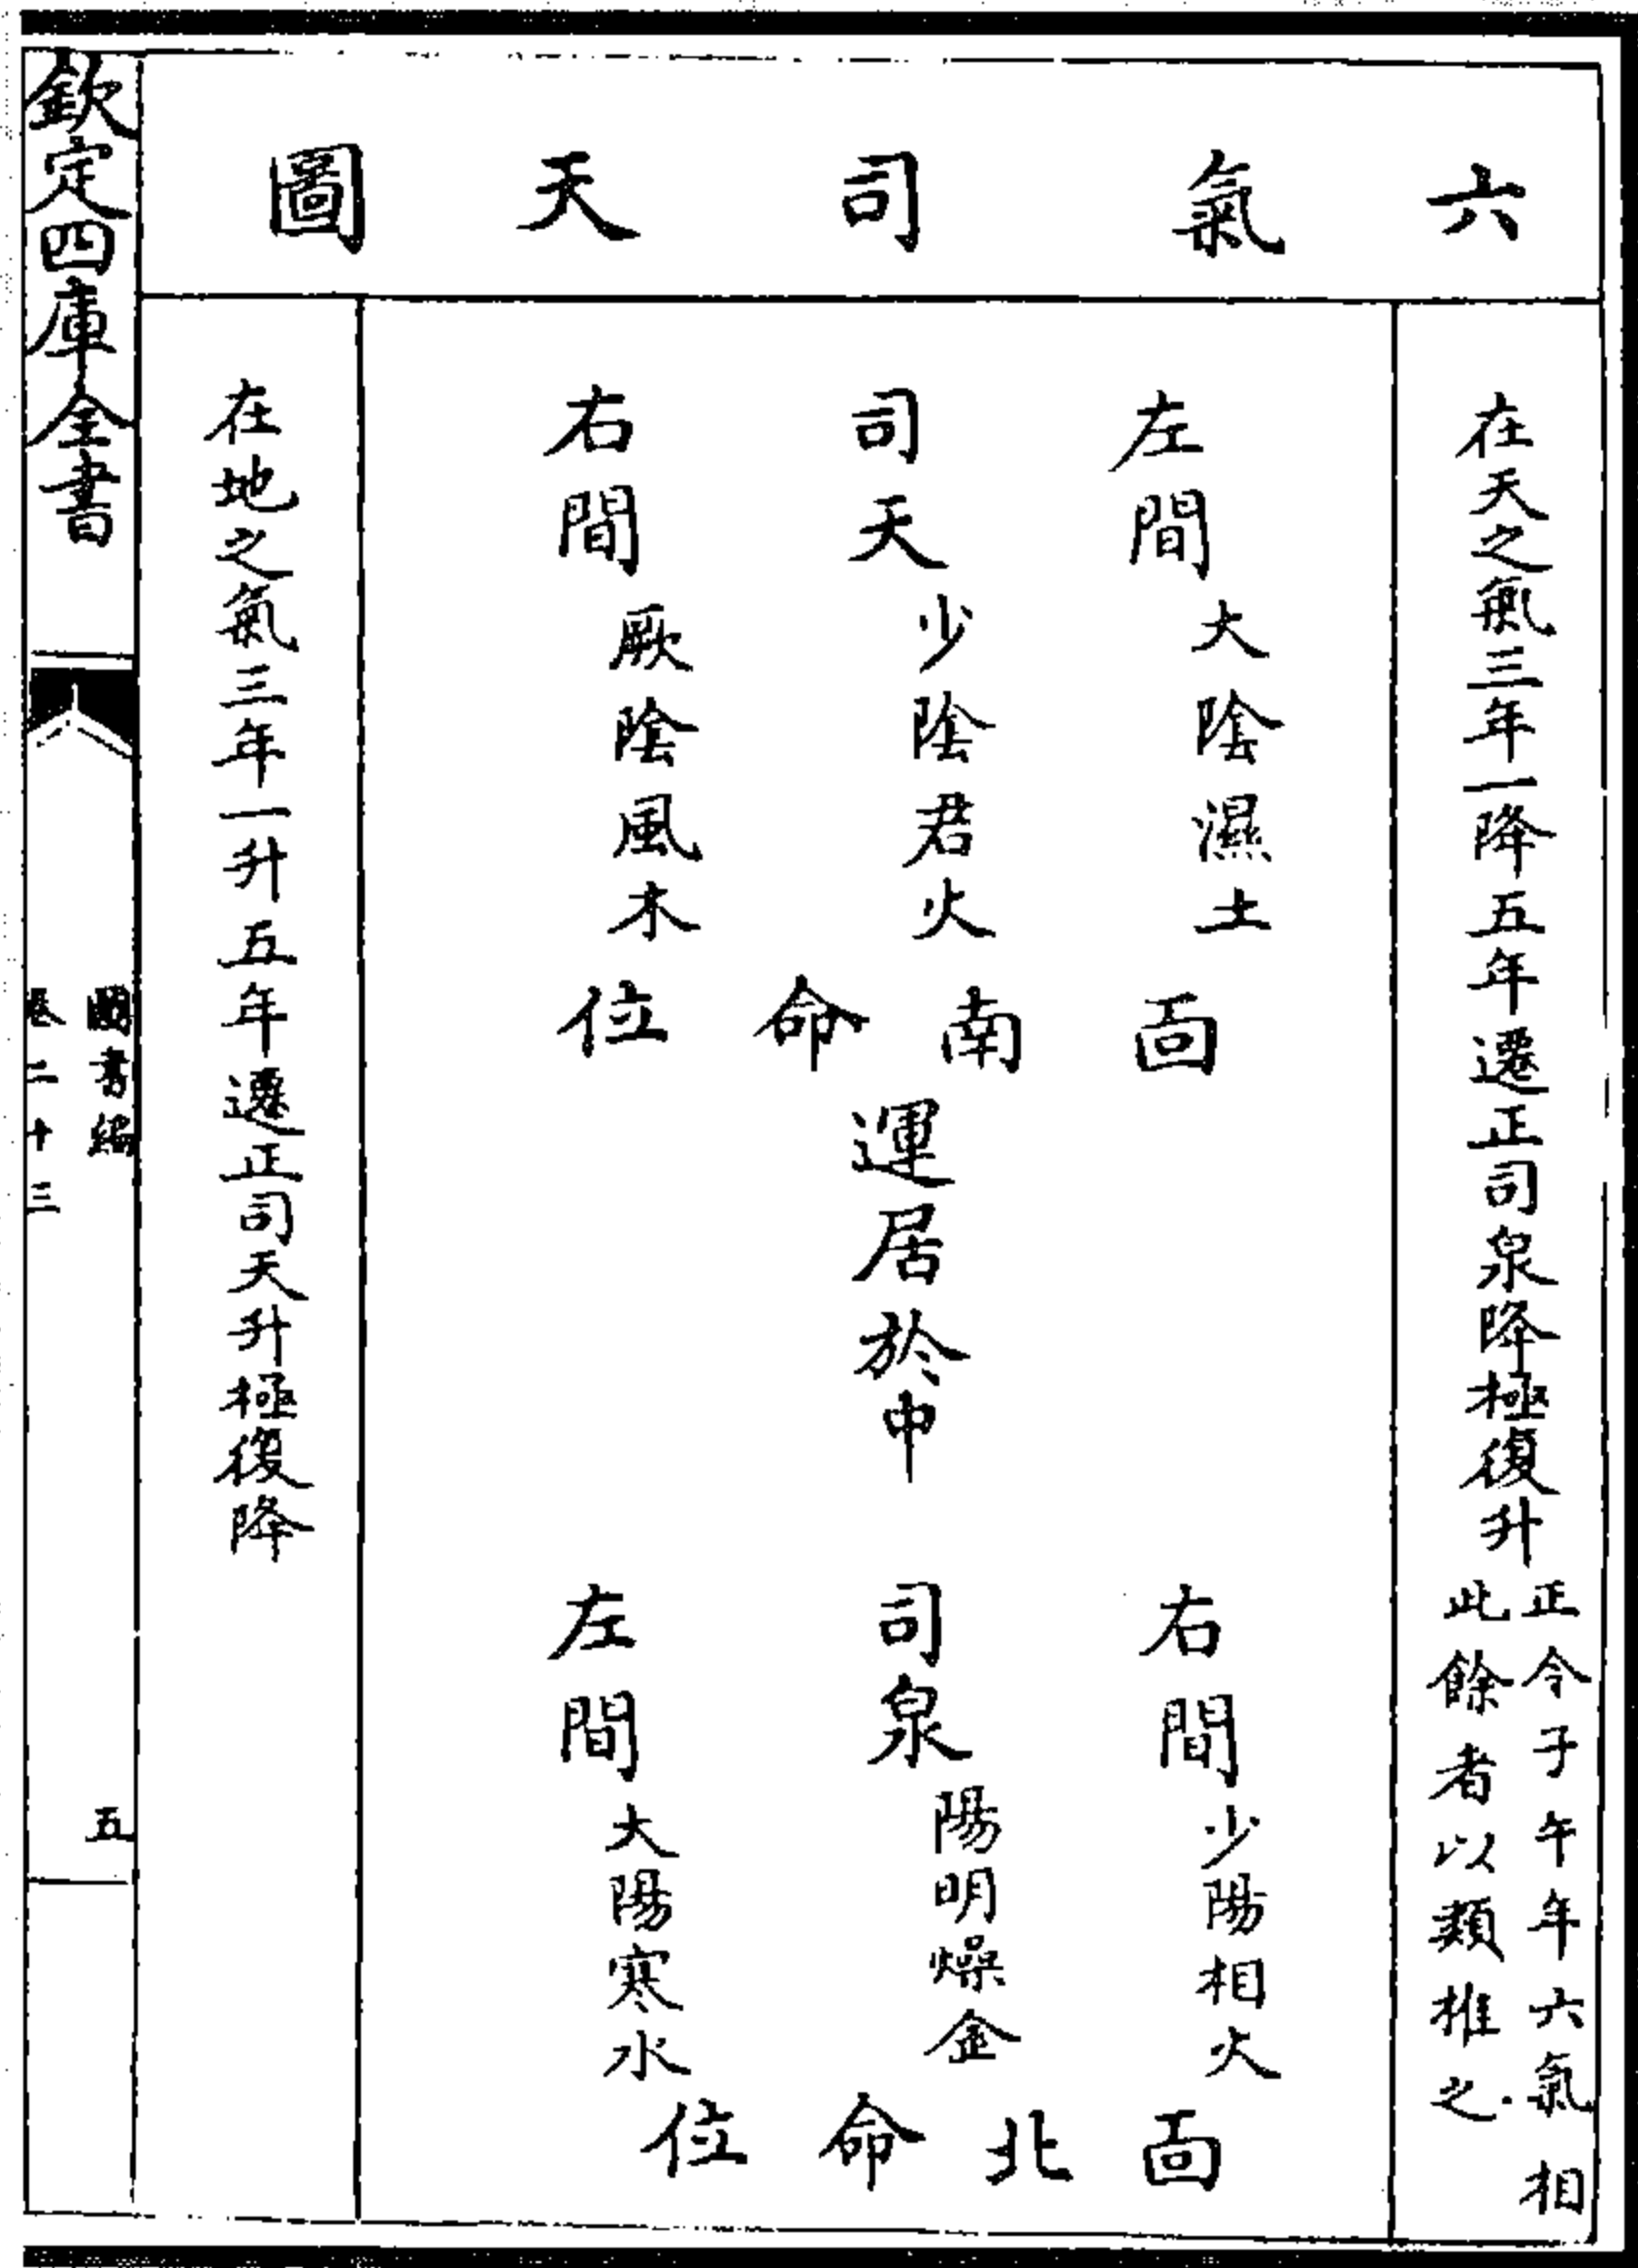 六氣司天圖
在天之氣三年一降五年遷正司泉降極復升
正令子午年六氣相
此餘者以類推之
左間大陰濕土
司天少陰君火
右間厥陰風木
面南命位
運居於中
右間少陽相火
司泉陽明燥金
左間大陽寒水
面北命位
在地之氣三年一升五年遷正司天升極復降
欽定四庫全書
圖書編
卷二十三
五